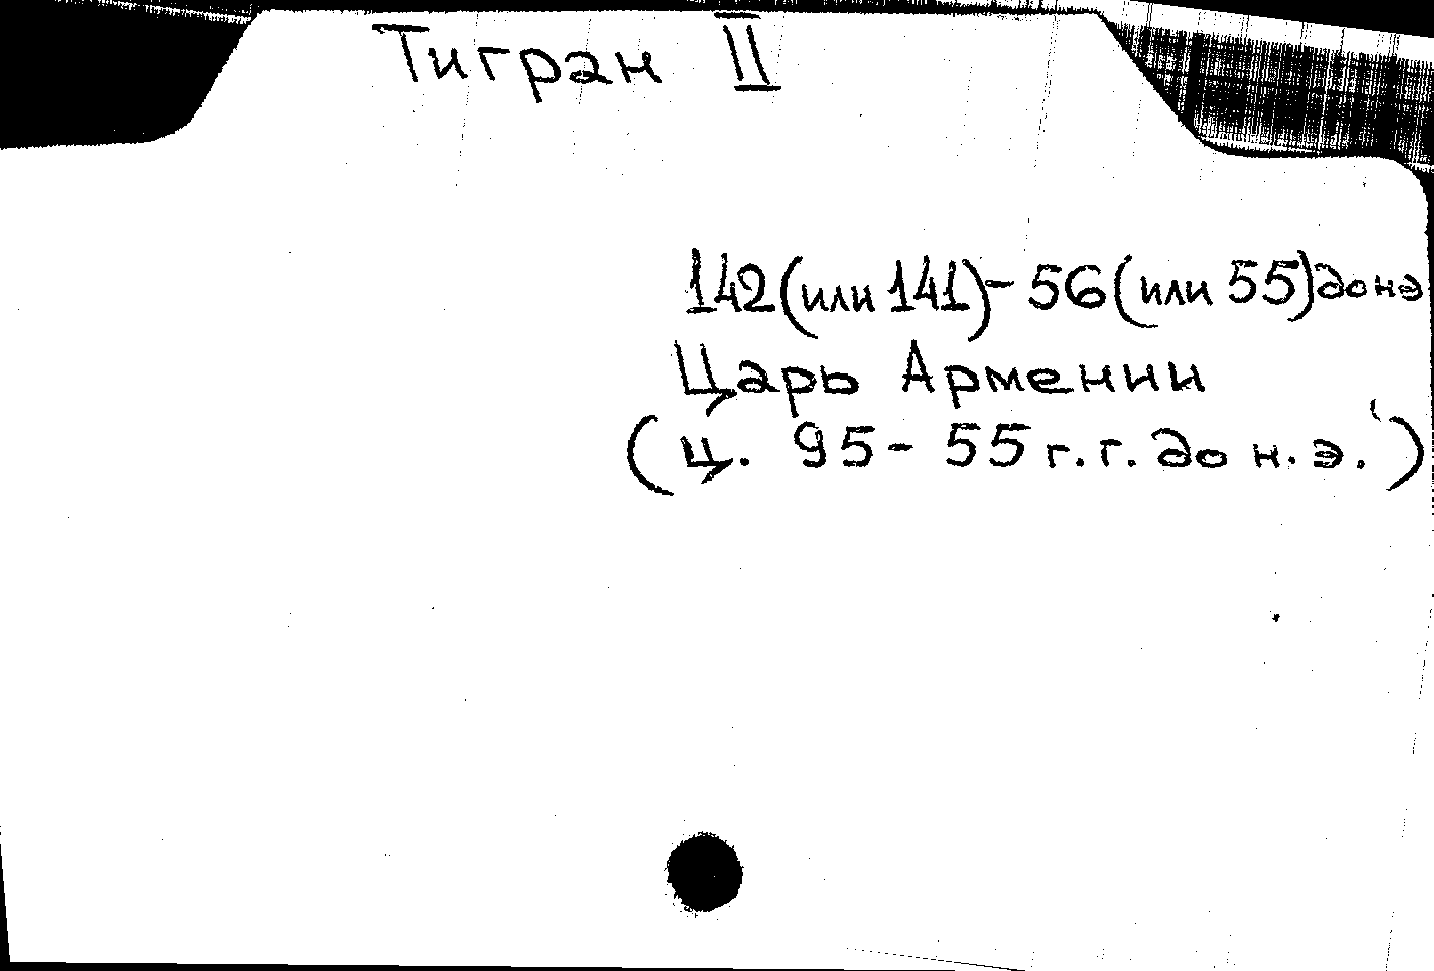 Тигран II
142 (или 141) - 56 (или 55) до нэ
Царь Армении
(ц. 95 - 55 г.г. до н.э.)